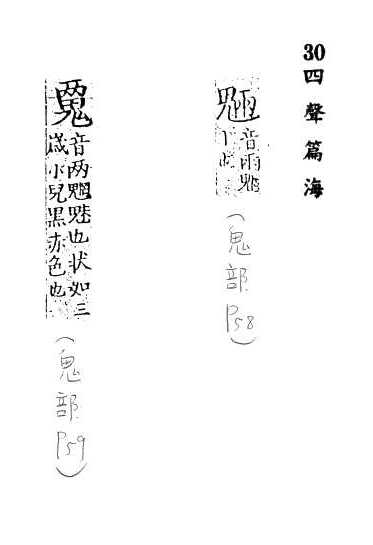 30四聲篇海
魎
音両魍
(鬼部P58)
音两魍魅也状如三
歳小兒黒赤色也
(鬼部P59)